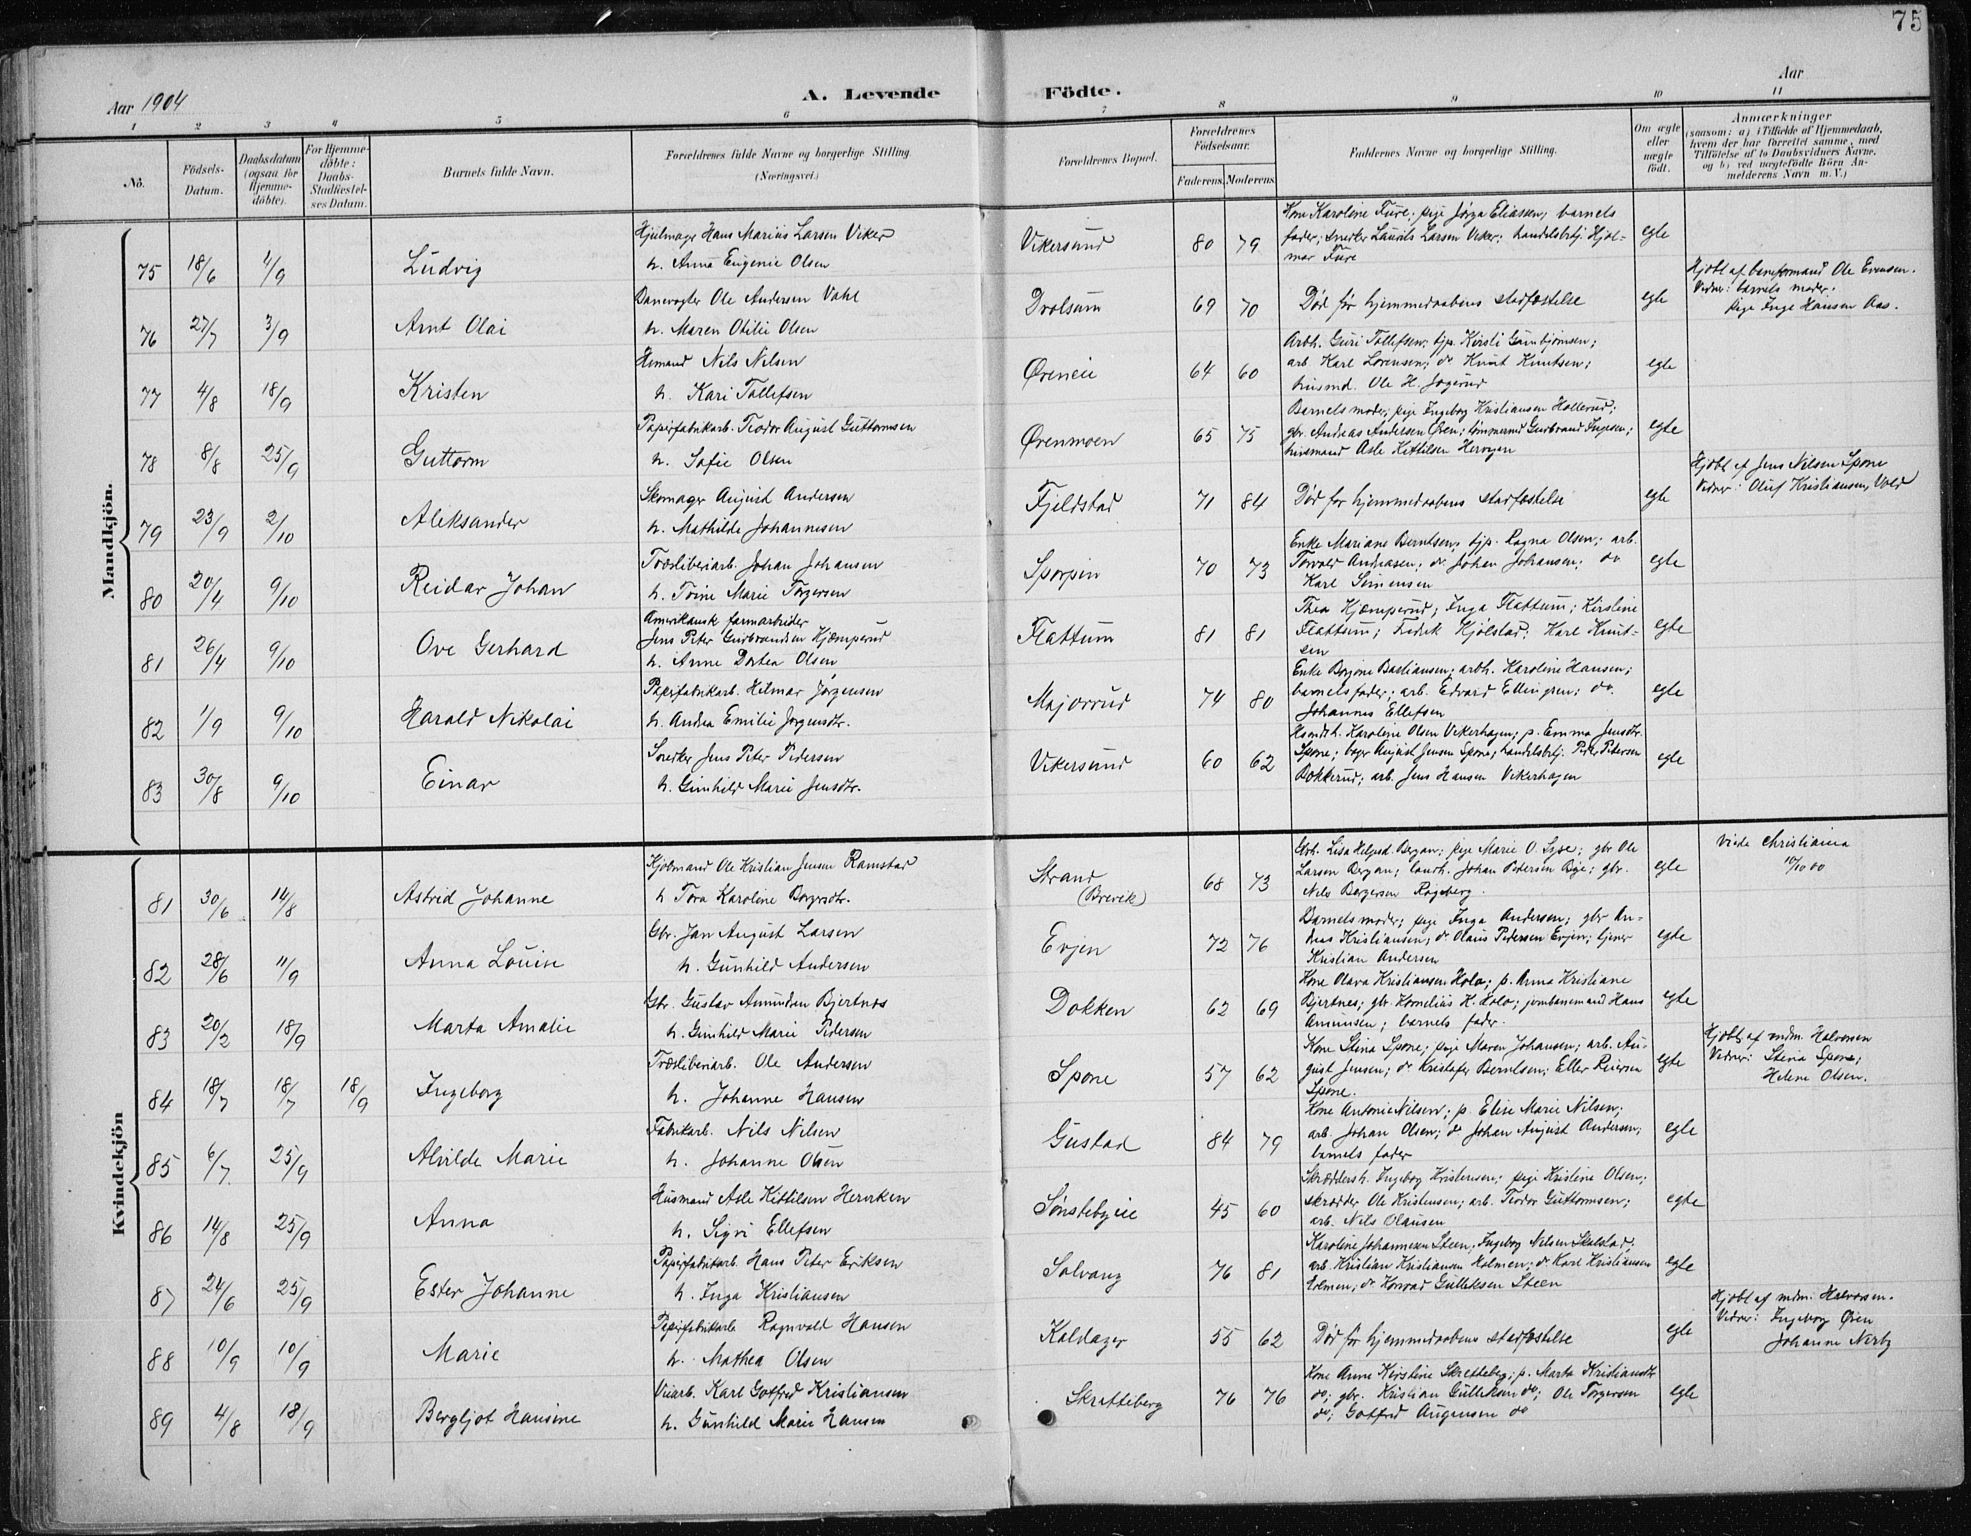 75
Aar 1904
A. Levende
Födte.
Aar
1 2 3 4 5 6 7 8 9 10 11
No.
Födsels-Datum.
Daabsdatum (ogsaa for Hjemmedøbte).
For Hjemmedøbte: Daabs-Stadfæstelses Datum.
Barnets fulde Navn.
Forældrenes fulde Navne og borgerlige Stilling. (Næringsvei.)
Forældrenes Bopæl.
Forældrenes Födselsaar.
Faderens. Moderens.
Faddernes Navne og borgerlige Stilling.
Om ægte eller uægte født.
Anmærkninger
(saasom: a) i Tilfælde af Hjemmedaab, hvem der har forrettet samme, med Tilföielse af to Daabsvidners Navne, og b) ved uægtefödte Börn Anmelderens Navn m. V.)
Mandkjön.
75 18/6 1/9 Ludvig
Hjulmager Hans Marius Larsen Viker
h. Anna Eugenie Olsen
Vikersund 80 79
Kone Karoline Fure; pige Jørga Eliassen; barnets
fader; snedker Laurits Larsen Viker; handelsbetj. Hjal-
mar Fure
egte
76 27/7 3/9 Arnt Olai
Banevogter Ole Andersen Vahl
h. Maren Otilie Olsen
Drolsum 69 70
Død før hjemmedaabens stadfæstelse
egte
Hjdbt af baneformand Ole Evensen.
Vidner: barnets moder.
pige Inge Hansen Aas.
77 4/8 18/9 Kristen
Husmand Nils Nilsen
h. Kari Tollefsen
Øreneie 64 60
Arbh. Guri Tollefsen; tjp. Kirsti Gunbjørnsen;
arb. Karl Lorensen; do Knut Knutsen;
husmd. Ole H. Jøgerud
egte
78 8/8 25/9 Guttorm
Papirfabrikarb. Teodor August Guttormsen
h. Sofie Olsen
Ørenmoen 65 75
Barnets moder; pige Ingeborg Kristiansen Hollerud;
gbr. Andreas Andersen Øren; tømmermd Gudbrand Jupsen;
husmand Asle Kittilsen Hervigen
egte
79 23/9 2/10 Aleksander
Skomager August Andersen
h. Mathilde Johannesen
Fjeldstad 71 84
Død før hjemmedaabens stadfæstelse
egte
Hjdbt af Jens Nilsen Spone
Vidner: Oluf Kristiansen Vold
80 20/4 9/10 Reidar Johan
Træsliberiarb. Johan Johansen
h. Trine Marie Torgersen
Sporpin 70 73
Enke Mariane Berntsen; tjp. Ragna Olsen; arb.
Torvald Andreasen; do Johan Johansen; do
Karl Simensen
egte
81 26/4 9/10 Ove Gerhard
Amerikansk farmarbeider
Jens Peter Gudbrandsen Hjæmperud
h. Anne Dortea Olsen
Flattum 81 81
Thea Hjæmperud; Inga Flattum; Kirstine
Flattum; Fredrik Hjølstad; Karl Knut-
sen
egte
82 1/9 9/10 Harald Nikolai
Papirfabrikarb. Hilmar Jørgensen
h. Andrea Emilie Jørgensdtr.
Majorrud 74 80
Enke Borjine Bastiansen; arbh. Karoline Hansen;
barnets fader; arb. Edvard Ellingsen; do.
Johannes Ellefsen
egte
83 30/8 9/10 Einar
Snedker Jens Peter Pedersen
h. Gunhild Marie Jensdtr.
Vikersund 60 62
Husmdsh. Karoline Olsen Vikerhagen; p. Emma Jensdtr.
Spone; bager August Jensen Spone; handelsbetj. Peter Petersen
Bokkerud; arb. Jens Hansen Vikerhagen
egte
Kvindekjön
81 30/6 14/8 Astrid Johanne
Kjøbmand Ole Kristian Jensen Ramstad
h Tora Karoline Borgersdtr.
Strand
(Brevik)
68 73
Gbh. Lisa Helgesd. Bergan; pige Marie O. Lyse; gbr Ole
Larsen Bergan; landh. Johan Petersen Bye; gbr.
Nils Børgersen Rageberg.
egte
viede Christiania
10/10 00
82 28/6 11/9 Anna Louise
Gbr. Jan August Larsen
h. Gunhild Andersen
Evjen 72 76
Barnets moder; pige Inga Andersen; gbr An-
dreas Kristiansen; do Olaus Pedersen Evjen; tjener
Kristian Andersen
egte
83 20/2 18/9 Marta Amalie
Gbr. Gustav Amundsen Bjertnes
h. Gunhild Marie Pedersen
Dokken 62 69
Kone Olava Kristiansen Holo; p. Anna Kristiane
Bjertnes; gbr. Kornelius H. Holo; jernbanemand Hans
Amundsen; barnets fader.
egte
84 18/7 18/7 18/9 Ingeborg
Træsliberiarb. Ole Andersen
h. Johanne Hansen
Spone 57 62
Kone Stina Spone; pige Maren Johansen; arb. Au-
gust Jensen; do Kristofer Berntsen; Eller Reiersen
Spone.
egte
Hjdbt af mdm. Halvorsen
Vidner: Stina Spone;
Helene Olsen.
85 6/7 25/9 Alvilde Marie
Fabrikarb. Nils Nilsen
h. Johanne Olsen
Gustad 84 79
Kone Antonie Nilsen; p. Elise Marie Nilsen;
arb. Johan Olsen; do Johan August Andersen;
barnets fader
egte
86 14/8 25/9 Anna
Husmand Asle Kittilsen Herviken
h. Sigri Ellefsen
Sønstebyeie 45 60
Skrædderh. Ingeborg Kristensen; pige Kristine Olsen;
skrædder Ole Kristensen; arb. Teodor Guttormsen;
arb. Nils Olausen
egte
87 24/6 25/9 Ester Johanne
Papirfabrikarb. Hans Peter Eriksen
h. Inga Kristiansen
Solvang 76 81
Karoline Johannesen Steen; Ingeborg Nilsen Skalstad;
arb. Kristian Kristiansen Holmen; do Karl Kristiansen
Holmen; do Konrad Gulliksen Steen
egte
88 10/9 10/9 Marie
Papirfabrikarb. Ragnvald Hansen
h. Mathea Olsen
Kaldager 55 62
Død før hjemmedaabens stadfæstelse
egte
Hjdbt af mdm. Halvorsen.
Vidner: Ingeborg Øren
Johanne Nerby
89 4/8 18/9 Bergljot Hansine
Veiarb. Karl Gotfred Kristiansen
h. Gunhild Marie Hansen
Skretteberg 76 76
Kone Anne Kirstine Skretteberg; p. Marta Kristiansdtr
do; gbr. Kristian Gulliksen do; Ole Torgersen
do; Gotfred Augensen do
egte